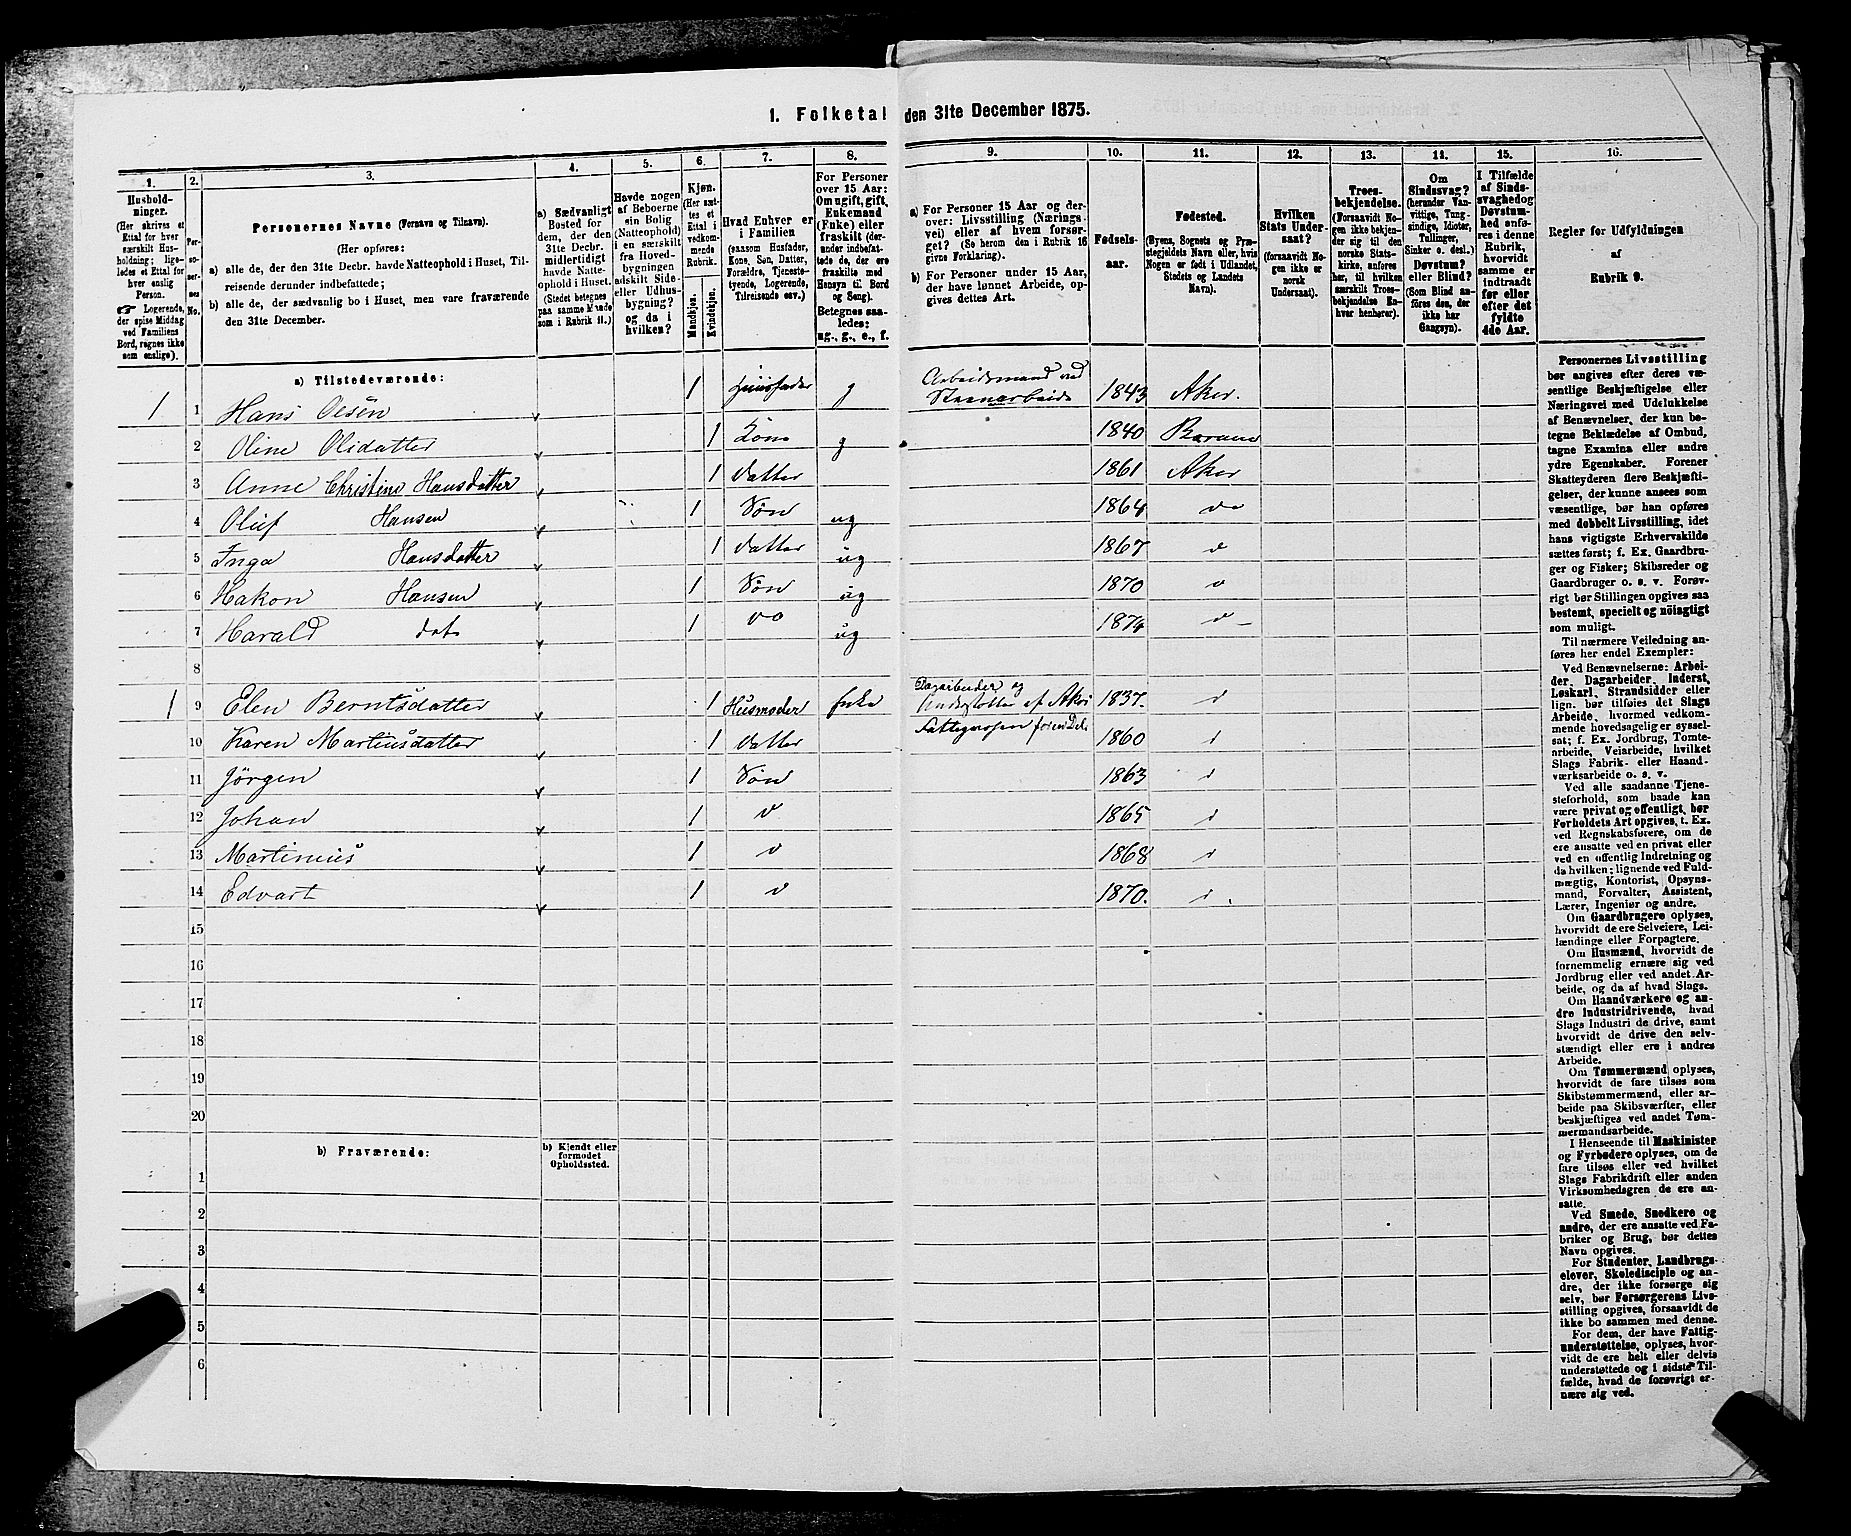 1. Folketal den 31te December 1875.
1. 2. 3. 4. 5. 6. 7. 8. 9. 10. 11. 12. 13. 14. 15. 16.
Hushold-
ninger.
(Her skrives et
Ettal for hver
særskilt Hus-
holdning; lige-
ledes et Ettal for
hver enslig
Person.
☞ Logerende,
der spise Middag
ved Familiens
Bord, regnes ikke
som enslige).
Per-
soner-
nes
No.
Personernes Navne (Fornavn og Tilnavn).
(Her opføres:
a) alle de, der den 31te Decbr. havde Natteophold i Huset, Til-
reisende derunder indbefattede;
b) alle de, der sædvanlig bo i Huset, men vare fraværende
den 31te December.
a) Sædvanligt
Bosted for
dem, der den
31te Decbr.
midlertidigt
havde Natte-
ophold i Huset.
(Stedet betegnes
paa samme Maade
som i Rubrik 11.)
Havde nogen
af Beboerne
sin Bolig
(Natteophold)
i en særskilt
fra Hoved-
bygningen
adskilt Side-
eller Udhus-
bygning?
og da i
hvilken?
Kjøn.
(Her sæt-
tes et
Ettal i
vedkom-
mende
Rubrik.
Mandkjøn.
Kvindekjøn.
Hvad Enhver er
i Familien
(saasom Husfader,
Kone, Søn, Datter,
Forældre, Tjeneste-
tyende, Logerende,
Tilreisende osv.)
For Personer
over 15 Aar:
Om ugift, gift,
Enkemand
(Enke) eller
fraskilt (der-
under indbefat-
tede de, der ere
fraskilte med
Hensyn til Bord
og Seng).
Betegnes saa-
ledes:
ug., g., e., f.
a) For Personer 15 Aar og der-
over: Livsstilling (Nærings-
vei) eller af hvem forsør-
get? (Se herom den i Rubrik 16
givne Forklaring).
b) For Personer under 15 Aar,
der have lønnet Arbeide, op-
gives dettes Art.
Fødsels-
aar.
Fødested.
(Byens, Sognets og Præ-
stegjeldets Navn eller, hvis
Nogen er født i Udlandet,
Stedets og Landets
Navn).
Hvilken
Stats Under-
saat?
(forsaavidt No-
gen ikke er
norsk
Undersaat).
Troes-
bekjendelse.
(Forsaavidt No-
gen ikke bekjen-
der sig til den
norske Stats-
kirke, anføres
her, til hvilken
særskilt Troes-
bekjendelse En-
hver henhører).
Om
Sindssvag?
(herunder Van-
vittige, Tung-
sindige, Idioter,
Tullinger,
Sinker o. desl.)
Døvstum?
eller Blind?
(Som Blind an-
føres den, der
ikke har
Gangsyn).
I Tilfælde
af Sinds-
svaghed og
Døvstum-
hed anfø-
res i denne
Rubrik,
hvorvidt
samme er
indtraadt
før eller
efter det
fyldte
4de Aar.
Regler for Udfyldningen
af
Rubrik 9.
a) Tilstedeværende:
1 1 Hans Olsen 1 Huusfader g Arbeidsmand ved Steenarbeide 1843 Aker.
2 Oline Olsdatter 1 Kone g 1840 Bærum
3 Anne Christine Hansdatter 1 Datter 1861 Aker
4 Oluf Hansen 1 Søn ug 1864 do
5 Inga Hansdatter 1 datter ug 1867 d
6 Hakon Hansen 1 Søn ug 1870 d
7 Harald dets 1 do ug 1874 d
8
1 9 Elen Berntsdatter 1 Husmoder enke Dagarbeider og Understøttes af Akers 1837. d
10 Karen Martinsdatter 1 datter Fattigvæsen for en Del. 1860 d
11 Jörgen 1 Søn 1863 d
12 Johan 1 d 1865 d
13 Martinius 1 d 1868 d
14 Edvart 1 d 1870. d.
15
16
17
18
19
20
b) Fraværende:
b) Kjendt eller
formodet
Opholdssted.
1
2
3
4
5
6
Personernes Livsstilling
bør angives efter deres væ-
sentlige Beskjæftigelse eller
Næringsvei med Udelukkelse
af Benævnelser, der kun be-
tegne Beklædelse af Ombud,
tagne Examina eller andre
ydre Egenskaber. Forener
Skatteyderen flere Beskjæfti-
gelser, der kunne ansees som
væsentlige, bør han opføres
med dobbelt Livsstilling, idet
hans vigtigste Erhvervskilde
sættes først; f. Ex. Gaardbru-
ger og Fisker; Skibsreder og
Gaardbruger o. s. v. Forøv-
rigt bør Stillingen opgives saa
bestemt, specielt og nøiagtigt
som muligt.
Til nærmere Veiledning an-
føres her endel Exempler:
Ved Benævnelserne: Arbei-
der, Dagarbeider, Inderst,
Løskarl, Strandsidder eller
lign. bør tilføies det Slags
Arbeide, hvormed vedkom-
mende hovedsagelig er syssel-
sat; f. Ex. Jordbrug, Tomte-
arbeide, Veiarbeide, hvilket
Slags Fabrik- eller Haand-
værksarbeide o. s. v.
Ved alle saadanne Tjene-
steforhold, som baade kan
være privat og offentligt, bør
Forholdets Art opgives, t. Ex.
ved Regnskabsførere, om de
ere ansatte ved en privat eller
ved en offentlig Indretning og
da hvilken; lignende ved Fuld-
mægtig, Kontorist, Opsyns-
mand, Forvalter, Assistent,
Lærer, Ingeniør og andre.
Om Gaardbrugere oplyses,
hvorvidt de ere Selveiere, Lei-
lændinge eller Forpagtere.
Om Husmænd, hvorvidt de
fornemmelig ernære sig ved
Jordbrug eller ved andet Ar-
beide, og da af hvad Slags.
Om Haandværkere og an-
dre Industridrivende, hvad
Slags Industri de drive, samt
hvorvidt de drive den selv-
stændigt eller ere i andres
Arbeide.
Om Tømmermænd oplyses,
hvorvidt de fare tilsøs som
Skibstømmermænd, eller ar-
beide paa Skibsværfter, eller
beskjæftiges ved andet Tøm-
mermandsarbeide.
I Henseende til Maskinister
og Fyrbødere oplyses, om de
fare tilsøs eller ved hvilket
Slags Fabrikdrift eller anden
Virksomhedsgren de ere an-
satte.
Ved Smede, Snedkere og
andre, der ere ansatte ved Fa-
briker og Brug, bør dettes
Navn opgives.
For Studenter, Landbrugs-
elever, Skoledisciple og an-
dre, der ikke forsørge sig
selv, bør Forsørgerens Livs-
stilling opgives, forsaavidt de
ikke bo sammen med denne.
For dem, der have Fattig-
understøttelse, oplyses, hvor-
vidt de ere helt eller delvis
understøttede og i sidste Til-
fælde, hvad de forøvrigt er-
nære sig ved.